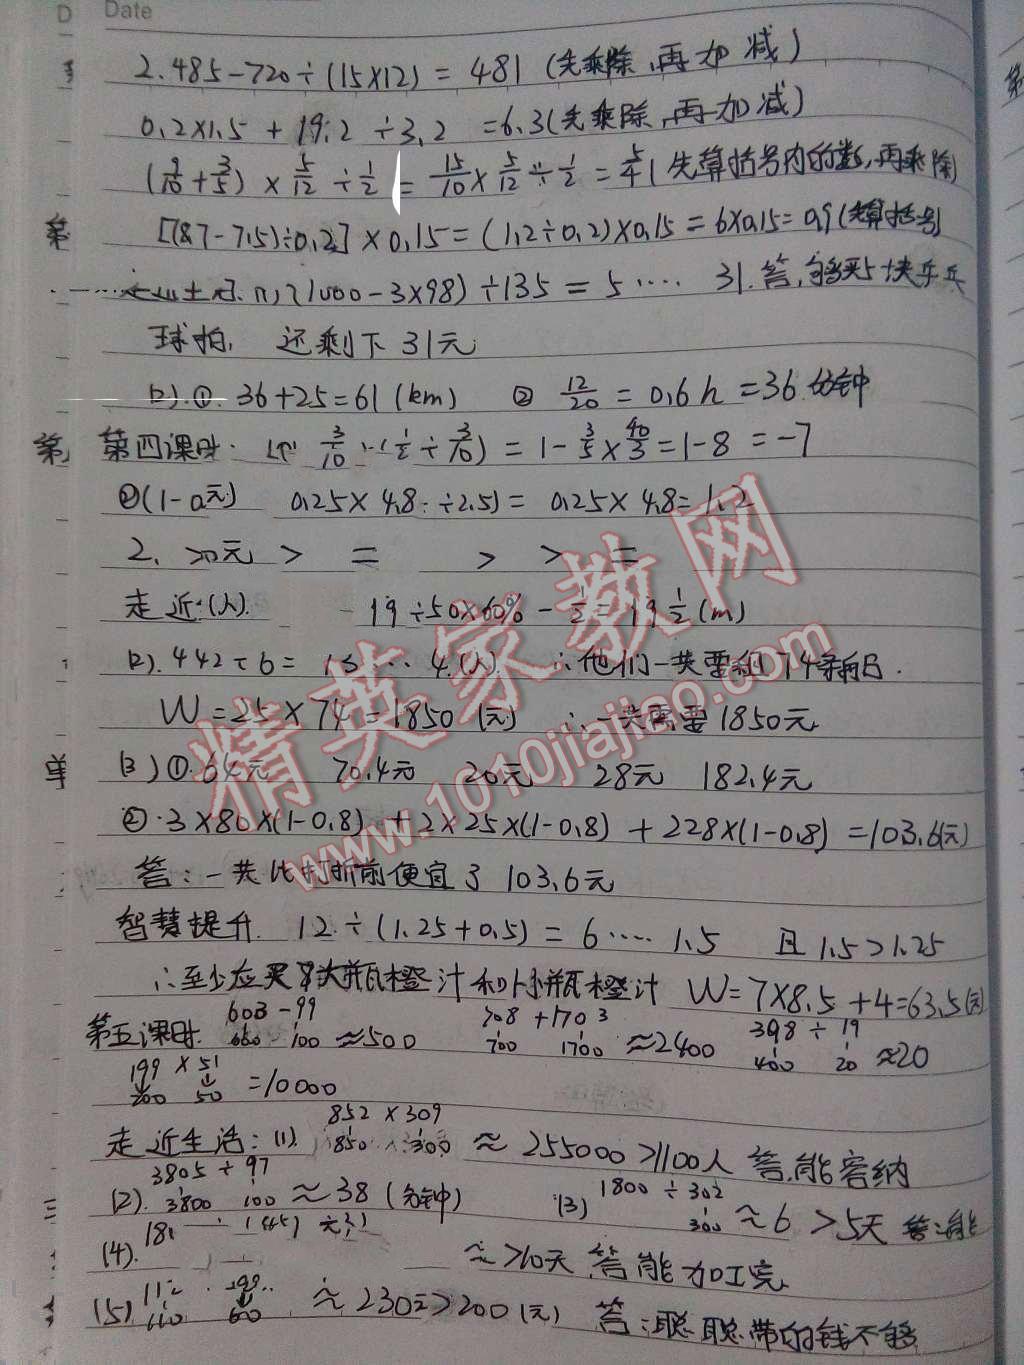 D Date
2. 485-720÷(15×12) = 481 (先乘除,再加减)
0.2×1.5 + 19.2 ÷3.2 =6.3(先乘除,再加减)
(9/10+3/5) × 5/12 ÷ 1/2 = 15/10 × 5/12 ÷ 1/2 = 5/4 (先算括号内的数,再乘除)
[(8.7-7.5)÷0.2] × 0.15 = (1.2÷0.2)×0.15 = 6×0.15= 0.9 (先算括号)
(1000-3×98) ÷135 = 5 ···· 31. 答,够买5块乒乓
球拍, 还剩下31元
(2).①. 36+25=61 (km) ② 12/20 = 0.6h =36分钟
第四课时. 3/10 (1/2 ÷ 3/10) = 1- 3/5 × 40/3 =1-8 =-7
② 0.25× 4.8 ÷2.5) = 0.25× 4.8= 1.2
2. > = > > =
走近:(人). 19÷50×60% - 1/2 = 19 1/2 (m)
(2). 442÷6= 4(人) ∴他们一共要租74条船.
W=25×74=1850(元) ∴一共需要1850元
(3)①.64元 70.4元 20元 28元 182.4元
②.3×80×(1-0.8) + 2×25×(1-0.8) + 228×(1-0.8) =103.6(元)
答:一共比打折前便宜了103.6元
智慧提升. 12÷(1.25+0.5) = 6 ···· 1.5 且1.5>1.25
∴至少应买 大瓶橙汁和 小瓶橙汁 W=7×8.5+4=63.5(元)
603-99 708+1703 398÷19
第五课时. 600 100 ≈500 700 1700 ≈2400 400 20 ≈20
199×51
200 50 =10000
852×309
走近生活:(1). 850 300 ≈ 255000>1100人 答,能容纳
3805÷97 1800÷302
(2). 3800 100 ≈38(分钟) (3) 300 ≈6 >5天 答:能
(4). ≈>10天 答能加工完
(5) ≈230元>200(元) 答:聪聪带的钱不够
精英家教网
www.1010jiajiao.com